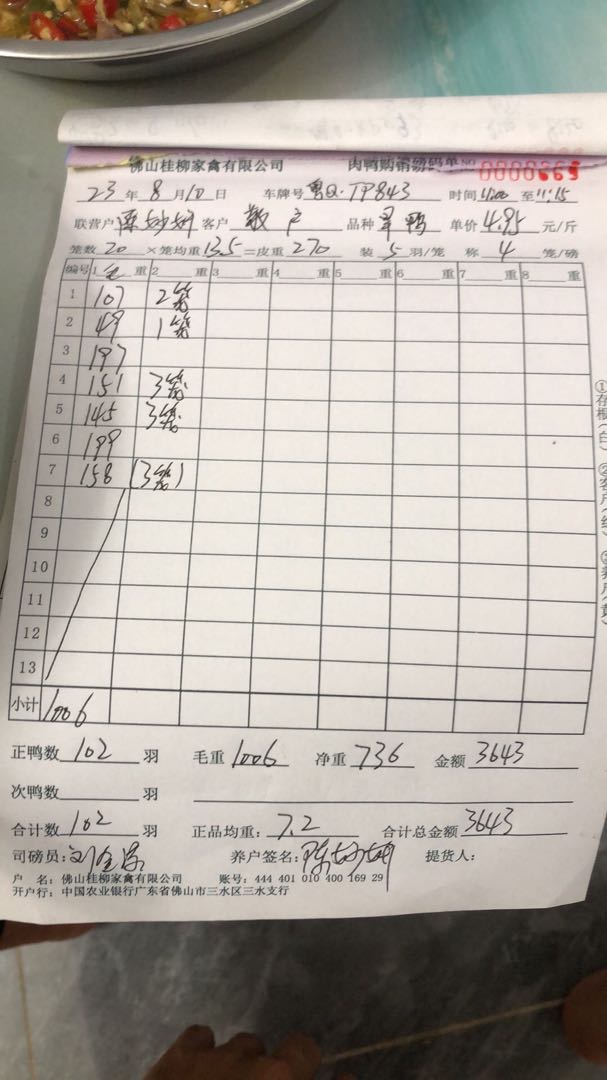 佛山桂柳家禽有限公司 肉鸭购销磅码单 NO 0000669
23 年 8 月 10 日 车牌号 粤Q·TP843 时间 11:00 至 11:15
联营户 客户 散户 品种 鸭 单价 4.95 元/斤
笼数 20 ×笼均重 13.5 =皮重 270 装 5 羽/笼 称 4 笼/磅
编号 1 毛 重 2 重 3 重 4 重 5 重 6 重 7 重 8 重
1 107 2笼
2 49 1笼
3 197
4 151 3笼
5 145 3笼
6 199
7 158 (3笼)
8
9
10
11
12
13
小计 1006
正鸭数 102 羽 毛重 1006 净重 736 金额 3643
次鸭数 羽
合计数 102 羽 正品均重: 7.2 合计总金额 3643
司磅员: 养户签名: 提货人:
户 名: 佛山桂柳家禽有限公司 账号: 444 401 010 400 169 29
开户行: 中国农业银行广东省佛山市三水区三水支行
①存根(白) ②客户(红)